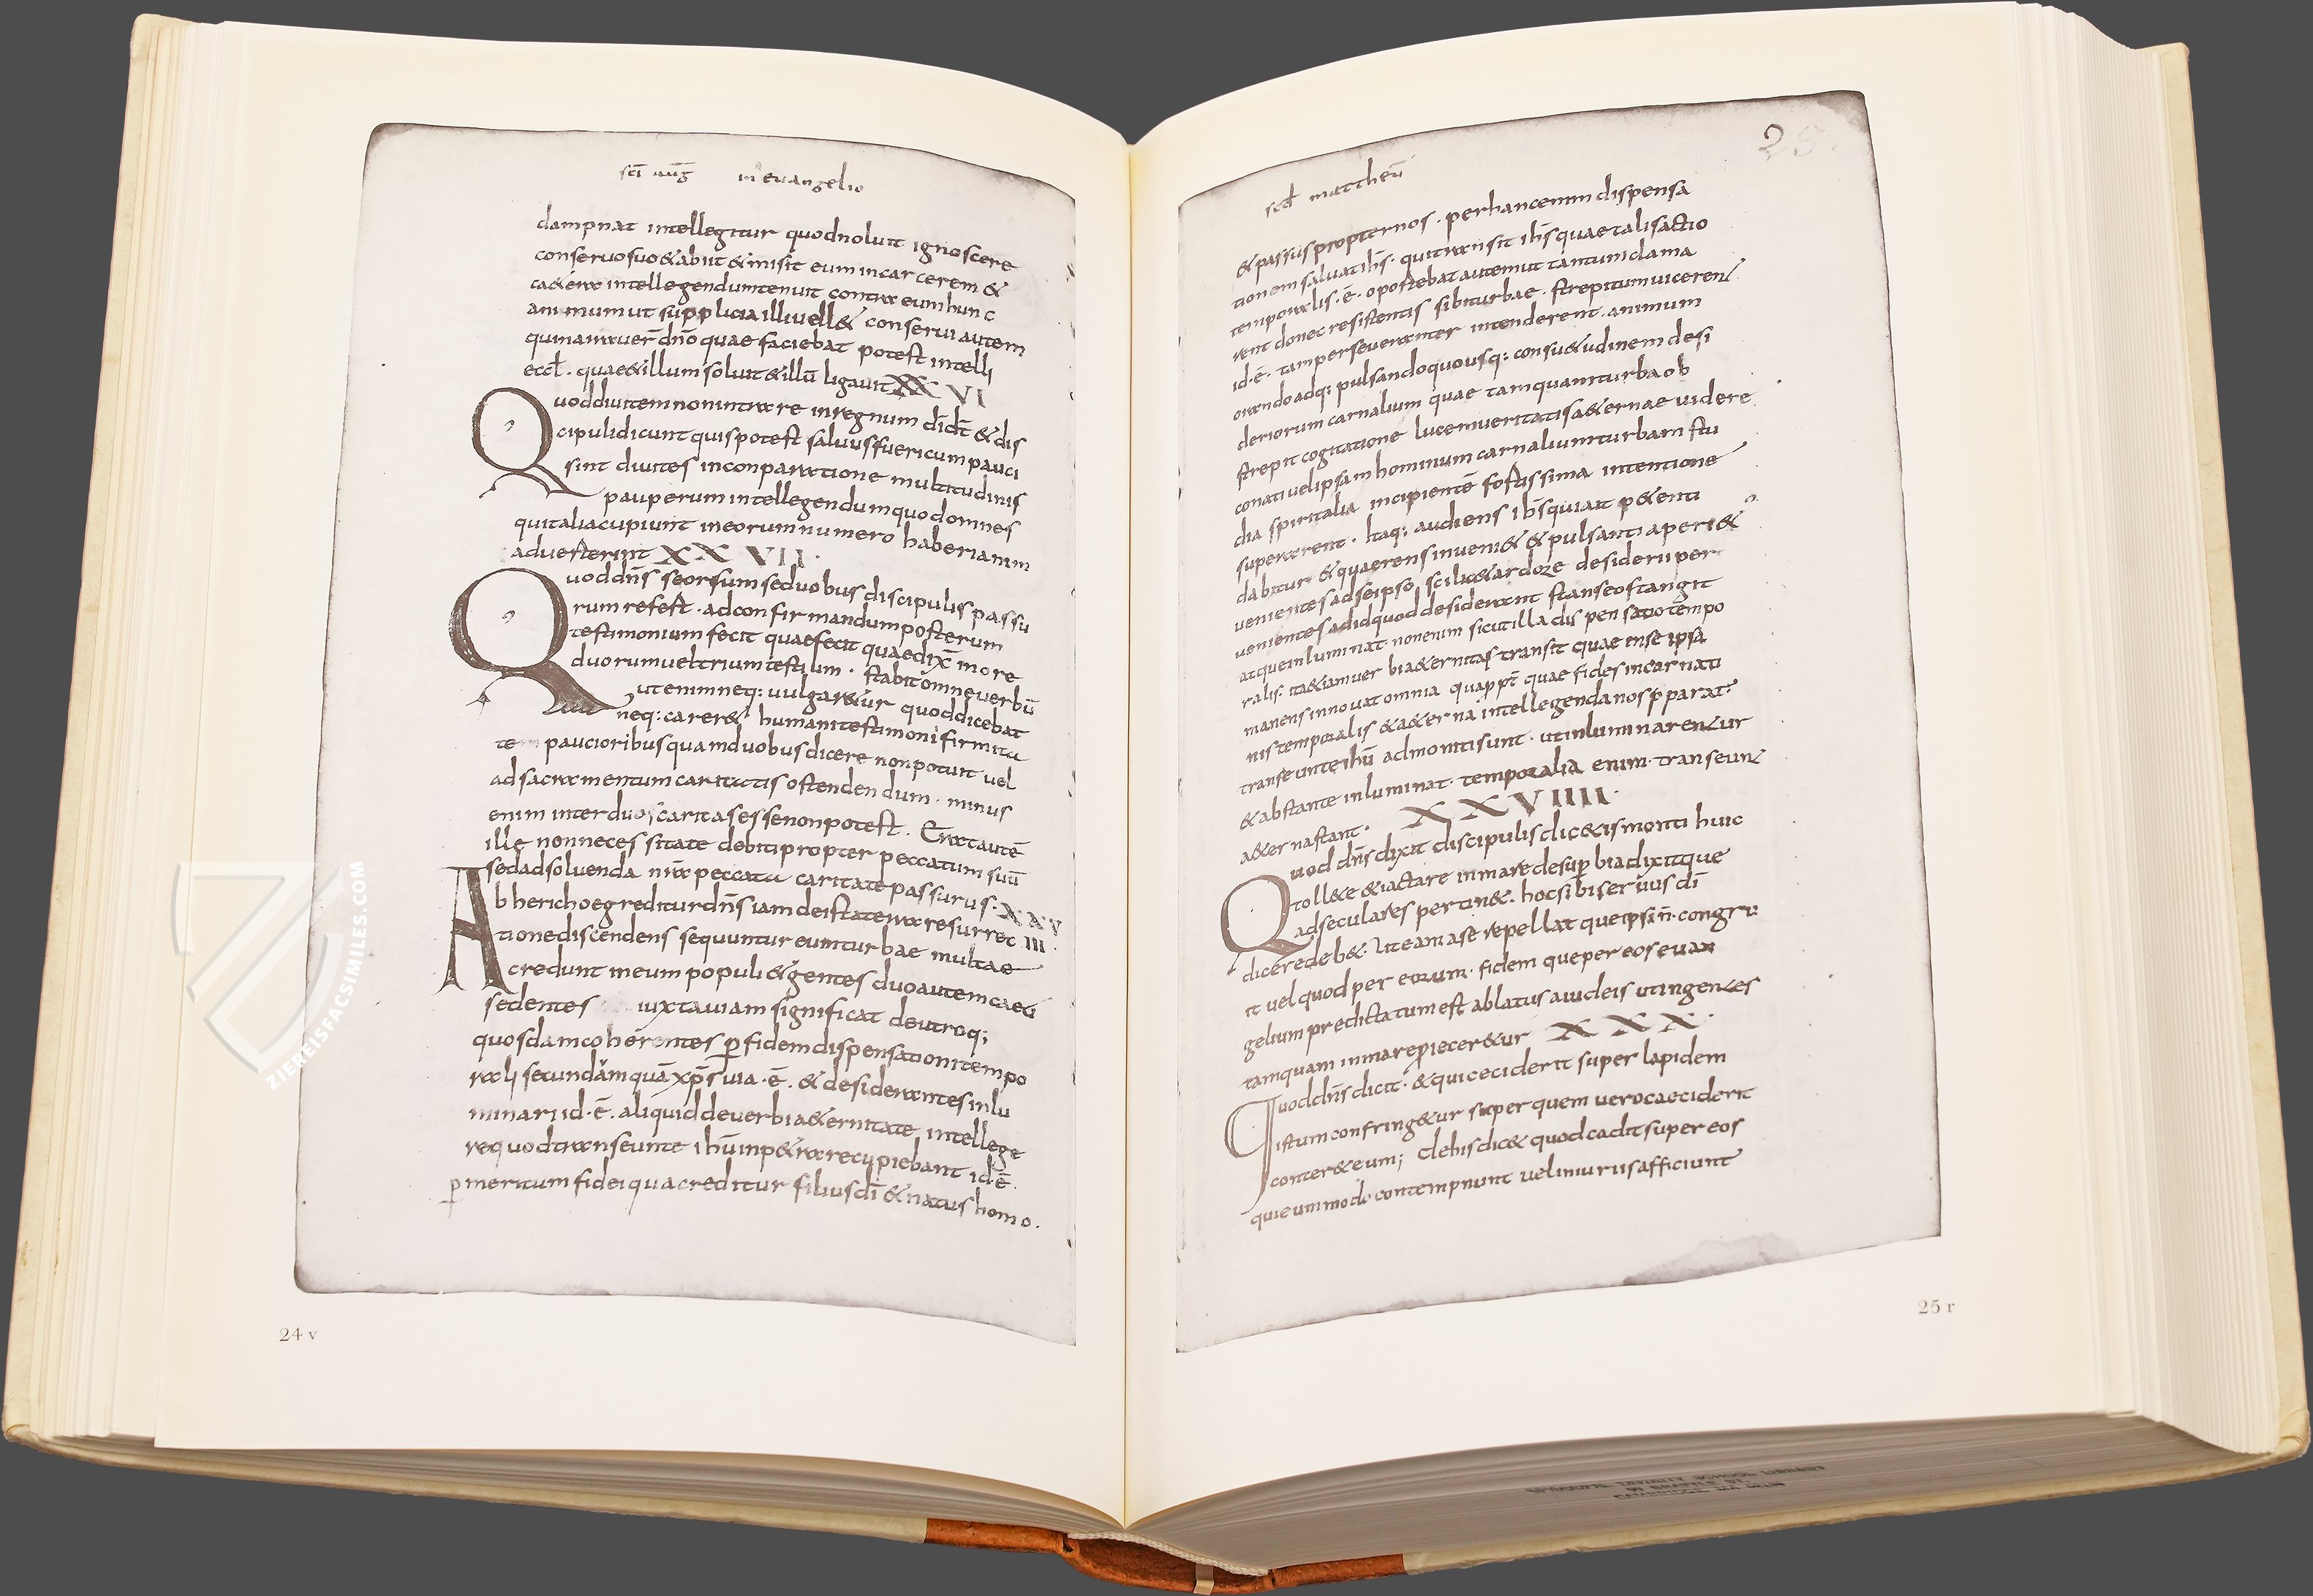 sc̄i aūg in euangelio
dampnat intellegitur quod noluit ignoscere
conseruo suo & abiit & misit eum in carcerem &
ca&era intellegendum tenuit contra eum hunc
animum ut supplicia illi uell& conserui autem
qui narrauer̄ dn̄o quae faciebat potest intelli
eccl. quae & illum soluit & illū ligauit XXVI
Quod diuitem non intrare in regnum di dict̄ & dis
cipuli dicunt quis potest saluus fueri cum pauci
sint diuites in conparatione multitudinis
pauperum intellegendum quod omnes
qui talia cupiunt in eorum numero haberi anim
aduerterint XXVII.
Quod dn̄s seorsum se duobus discipulis passu
rum refert. ad confirmandum posterum
testimonium fecit quae fecit quae dix̄ in ore
duorum uel trium testium. stabit omne uerbū
ut enim neq: uulgaretur quod dicebat
neq: carer& humani testimonī firmita
te paucioribus quam duobus dicere non potuit uel
ad sacramentum caritatis ostendendum. minus
enim inter duos caritas esse non potest. Erat autē
ille non necessitate debiti propter peccatum suū
sed ad soluenda nr̄a peccata caritate passurus. XXV
Ab hiericho egreditur dn̄s iam de istate ra resurrec III.
tione discendens sequuntur eum turbae multae
credunt in eum populi & gentes duo autem caeci
sedentes iuxta uiam significat de utroq;
quosdam coherentes p̱ fidem dispensationi tempo
rali secundam quā xp̄s uia .ē. & desiderantes inlu
minari id .ē. aliquid de uerbi a&ernitate intellege
re quod transeunte ihū inp&rare cupiebant id ē.
p̱ meritum fidei qua creditur filius dī & natus homo.
24 v
scd̄ mattheū
25.
& passus propter nos. per hanc enim dispensa
tionem saluat ihs̄. qui transit ihs̄ quae talis actio
temporalis .ē. oportebat autem ut tantum clama
rent donec resistentis sibi turbae. strepitum uicerent
id .ē. tam perseueranter intenderent. animum
orando adq; pulsando quousq: consu&udinem desi
deriorum carnalium quae tamquam turba ob
strepit cogitatione lucem ueritatis a&ernae uidere
conati uel ipsam hominum carnalium turbam stu
dia spiritalia incipientē fortissima intentione
superarent. Itaq: audiens ihs̄ qui ait p&enti
dabitur & quaerens inueni& & pulsanti aperi&
uenientes ad se ipso sciliceet ardore desiderii per
uenientes ad id quod desiderant stans eos tangit
atque inluminat non enim sicut illa dispensatio tempo
ralis. ita etiam uerbi a&ernitas transit quae in se ipsa
manens innouat omnia quapp̄t quae fides incarnati
nis temporalis & a&erna intellegenda nos p̄parat.
transeunte ihū admoniti sunt. ut inluminarentur
& abstante inluminat. temporalia enim. transeunt
a&erna stant. XXVIIII.
Quod dn̄s dixit discipulis dic&is monti huic
toll& e & iactare in mare de superbia dixit que
ad seculares pertin&. hoc sibi seruus dī
dicere deb&. ut eam a se repellat que ipsi n̄. congru
it uel quod per eorum. fidem que per eos euan
gelium predictatum est ablatus a iudeis ut in gentes
tamquam in mare p̄iecer&ur XXX.
Quod dn̄s dicit. & qui ceciderit super lapidem
istum confring&ur super quem uero caeciderit
conter& eum; de his dic& quod cadit super eos
qui eum modo contempnunt uel iniuriis afficiunt
25 r
ZIEREISFACSIMILES.COM
EPISCOPAL DIVINITY SCHOOL LIBRARY